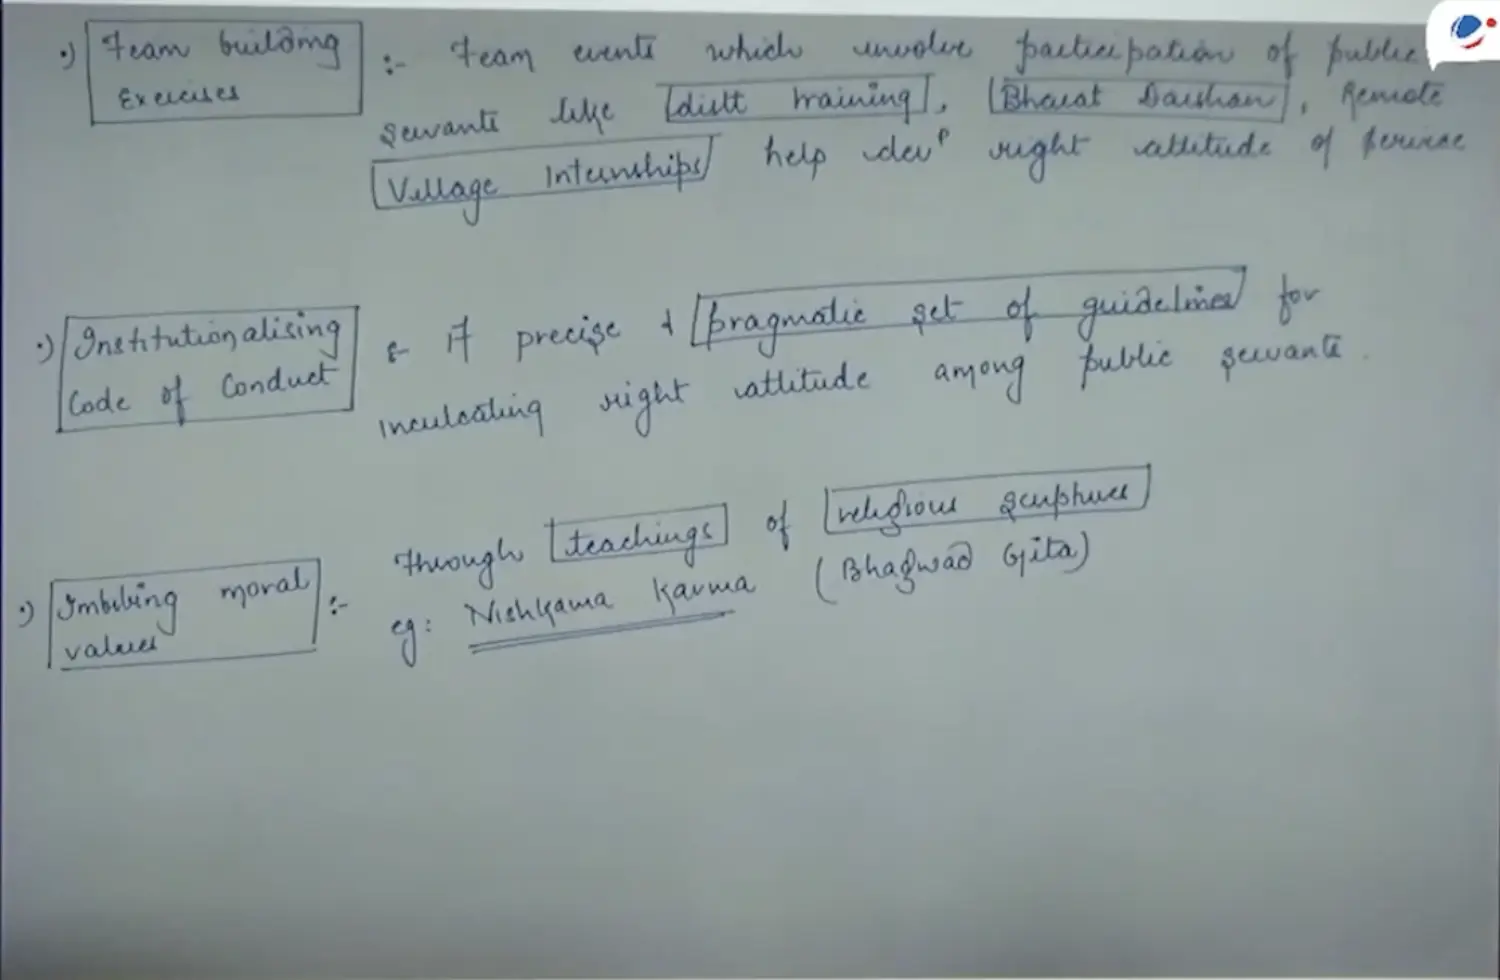 •) Team building :- Team events which involve participation of public
Exercises servants like distt training, Bharat Darshan, Remote
Village Internships help devp right attitude of service
•) Institutionalising :- if precise & pragmatic set of guidelines for
Code of Conduct inculcating right attitude among public servants.
•) Imbibing moral :- through teachings of religious scriptures
values eg: Nishkama Karma (Bhagwad Gita)